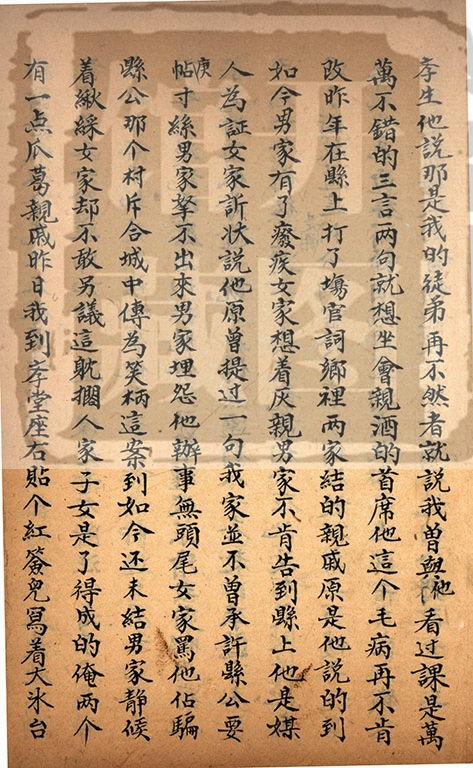 孝生他說那是我的徒弟再不然者就說我曽與他看过課是萬
萬不錯的三言兩句就想坐會親酒的首席他這个毛病再不肯
改昨年在縣上打了塲官詞鄉裡两家結的親戚原是他說的到
如今男家有了癈疾女家想着灰親男家不肯告到縣上他是媒
人為証女家訴状說他原曾提过一句我家並不曾承許縣公要
庚帖寸絲男家拏不出來男家埋怨他辦事無頭尾女家罵他佔騙
縣公那个村斥合城中傳為笑柄這案到如今还未結男家靜候
着緞綵女家却不敢另議這躭擱人家子女是了得成的俺两个
有一点瓜葛親戚昨日我到孝堂座右貼个紅簽兒寫着大氷台